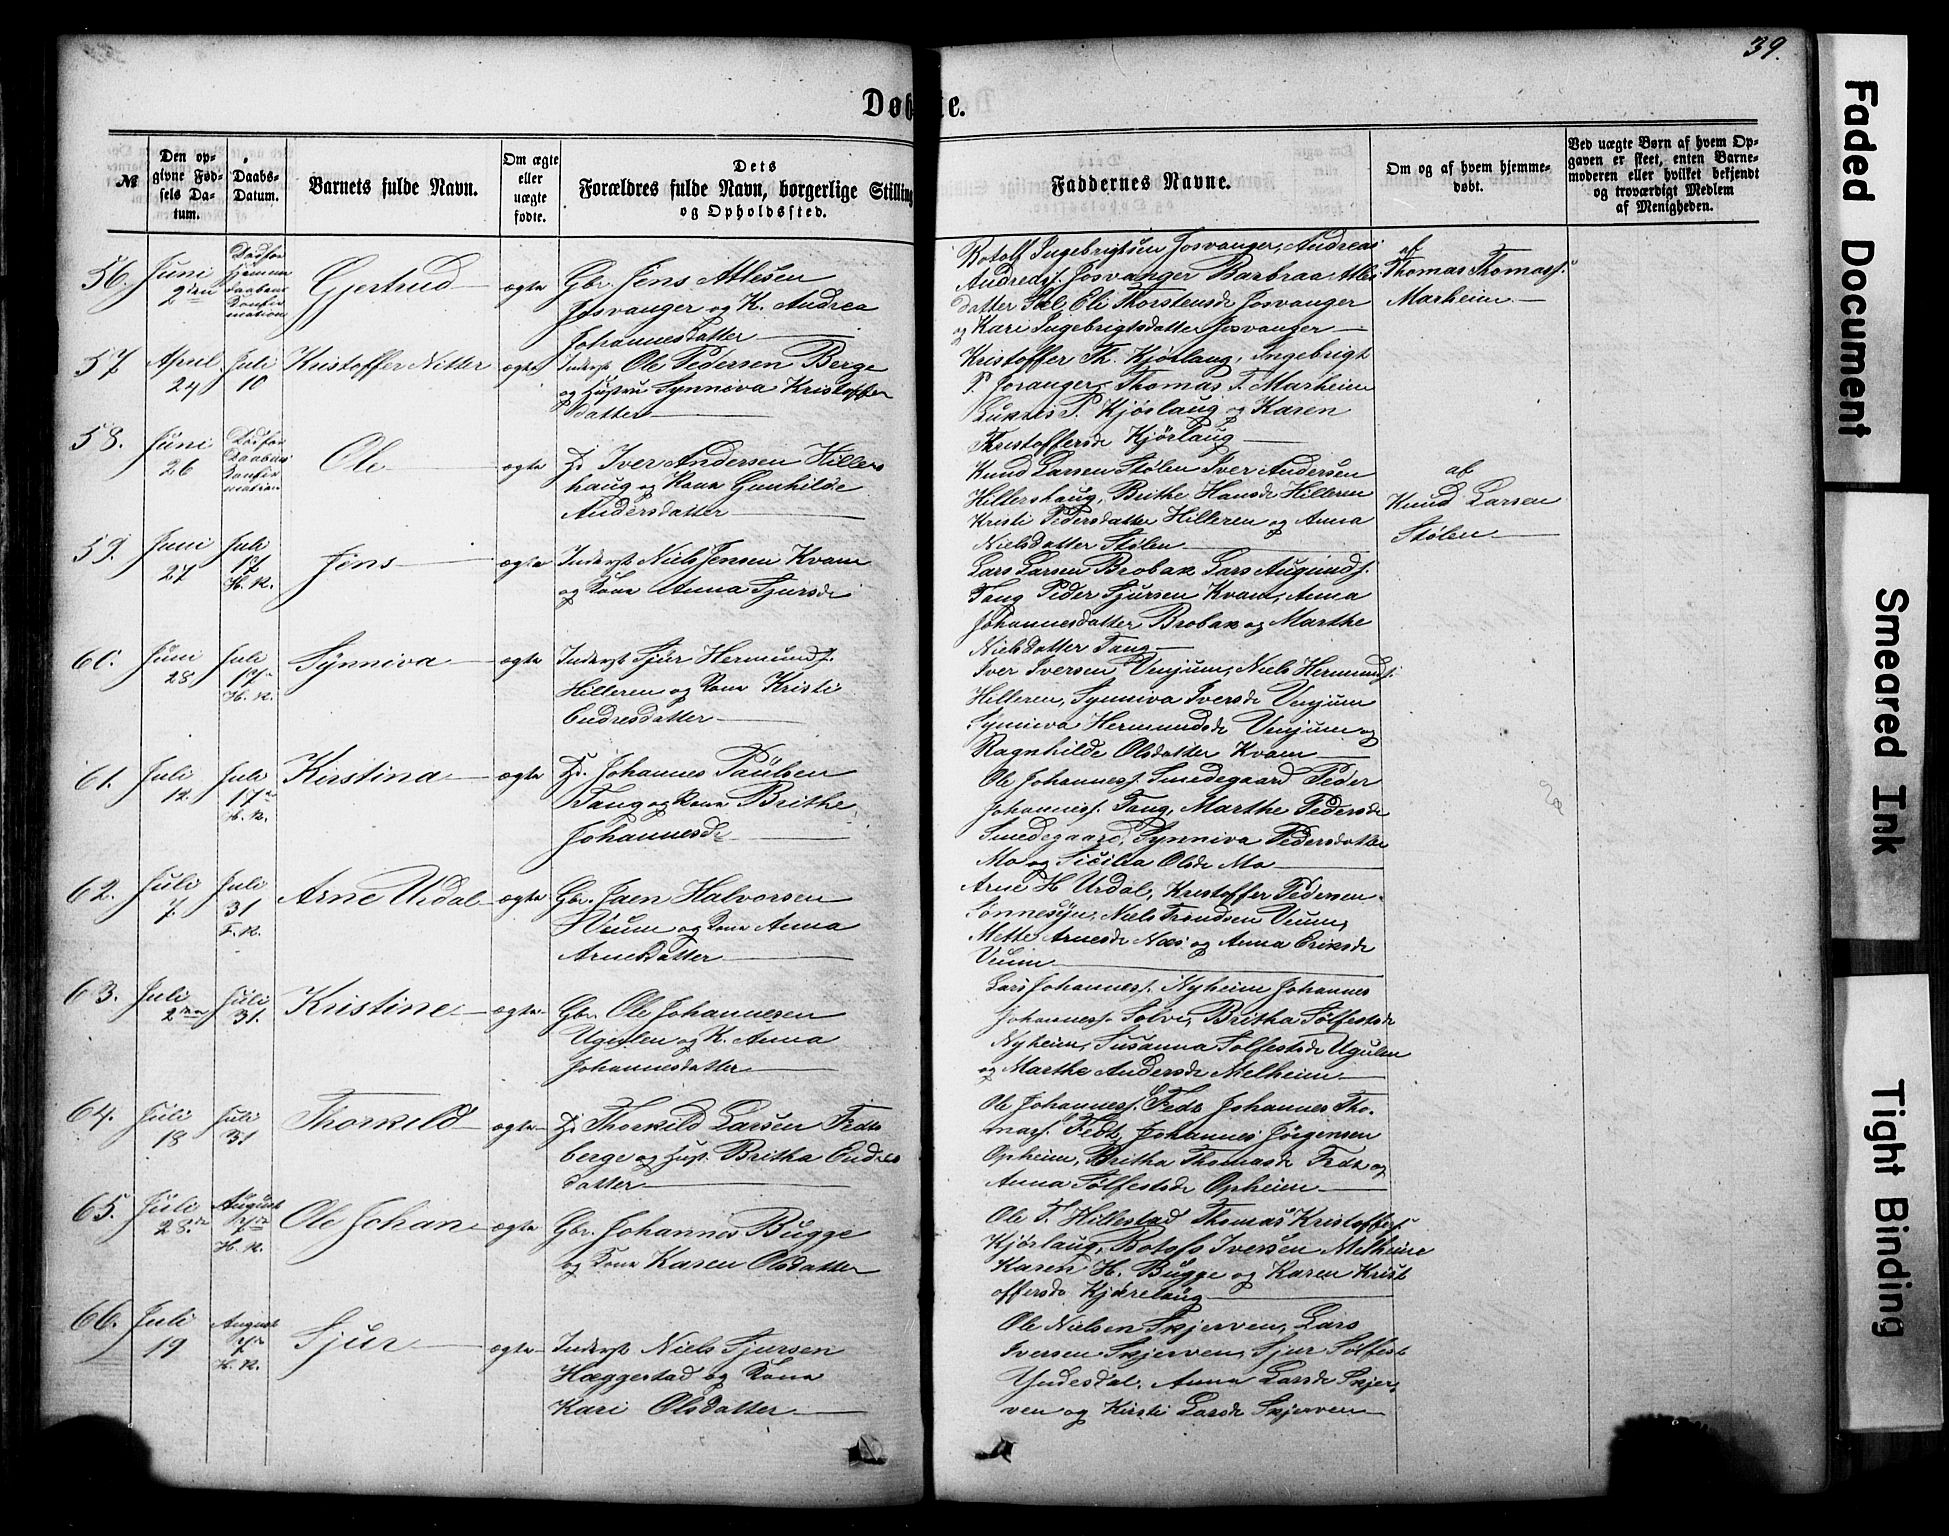 39.
Døbte.
№
Den opgivne Fødsels Datum.
Daabs-Datum.
Barnets fulde Navn.
Om ægte eller uægte fødte.
Dets Forældres fulde Navn, borgerlige Stilling og Opholdssted.
Faddernes Navne.
Om og af hvem hjemmedøbt.
Ved uægte Børn af hvem Opgaven er skeet, enten Barnemoderen eller hvilket bekjendt og troværdigt Medlem af Menigheden.
56. Juni 2den
Gjertrud
ægte
Gbr. Jens Atlesen
Josvanger og K. Andrea
Johannesdatter
Botolf Ingebrigtsen Josvanger, Andreas
Andreasf. Josvanger, Barbraa Atles
datter Ole Thorstensde Josvanger
og Kari Ingebrigtsdatter Josvanger
af
Thomas Thomasf.
Marheim
57 April 24 Juli 10
Kristoffer Nitter
ægte
Inderst Ole Pedersen Berge
og Hustru Synneva Kristoffer
datter
Kristoffer Th. Kjørlaug, Ingebrigt
P. Joranger, Thomas T. Marheim
P. Kjørlaug og Karen
Kristoffersde Kjørlaug
58. Juni 26
Ole
ægte
Iver Andersen Hillers
haug og Kone Gunhilde
Andersdatter
Knud Larsen Stølen Iver Andersen
Hillershaug, Brithe Hansde Hilleren
Kristi Pedersdatter Hilleren og Anna
Nielsdatter Stølen
af
Knud Larsen
Stølen
59. Juni 27 Juli 17 H. K.
Jens
ægte
Inderst Niels Jensen Kvam
og Kone Anna Sjursde
Lars Larsen Brobak Lars Augundf.
Tang Peder Sjursen Kvam, Anna
Johannesdatter Brobak og Marthe
Nielsdatter Tang
60. Juni 28. Juli 17 H. K.
Synneva
ægte
Inderst Sjur Hermundf.
Hilleren og Kone Kristi
Endresdatter
Iver Iversen Venjum, Niels Hermundf.
Hilleren, Synneva Iversde Venjum
Synneva Hermundsde Venjum og
Ragnhilde Olsdatter Kvam
61. Juli 12. Juli 17 H. K.
Kirstina
ægte
Johannes Paulsen
Tang og Kone Brithe
Johannesde
Ole Johannesf. Smedegaard Peder
Johannesf. Tang, Marthe Pedersde
Smedegaard, Synneva Pedersdatter
Mo og Sicilia Olsde Mo
62. Juli 7. Juli 31 F. K.
Arne Urdal
ægte
Gbr. Jaen Halvorsen
Veum og Kone Anna
Arnesdatter
Arne H Urdal, Kristoffer Pedersen
Sønnesyn, Niels Trondsen Veum,
Mette Arnesde Næs og Anna Eriksde
Veum
63. Juli 2den Juli 31.
Kristine
ægte
Gbr. Ole Johannesen
Ugulen og K. Anna
Johannesdatter
Lars Johannesf. Nyheim Johannes
Johannesf. Solve, Britha Sølfestsde
Nyheim, Susanna Solfestsde Ugulen
og Marthe Andersde Melheim
64. Juli 18 Juli 31
Thorkild
ægte
Thorkild Larsen Fedts
berge og Hust. Britha Endres
datter
Ole Johannesf. Fedt Johannes Tho-
masf. Fedt Johannes Jörgensen
Opheim, Britha Thomasde Fedt og
Anna Sølfestsde Opheim
65. Juli 28. August 7de H. K.
Ole Johan
ægte
Gbr. Johannes Bugge
og Kone Karen Olsdatter
Ole T. Hillestad Thomas Kristofferf.
Kjørlaug, Botolf Iversen Melheim
Karen H. Bugge og Karen Krist
offersde Kjørelaug
66. Juli 19 August 7de H. K.
Sjur
ægte
Inderst Niels Sjursen
Hæggestad og Kone
Kari Olsdatter
Ole Nielsen Skjerven, Lars
Iversen Skjerven, Sjur Solfest
Yndesdal, Anna Larsde Skjer
ven og Kirsti Larsde Skjerven
Faded Document
Smeared Ink
Tight Binding